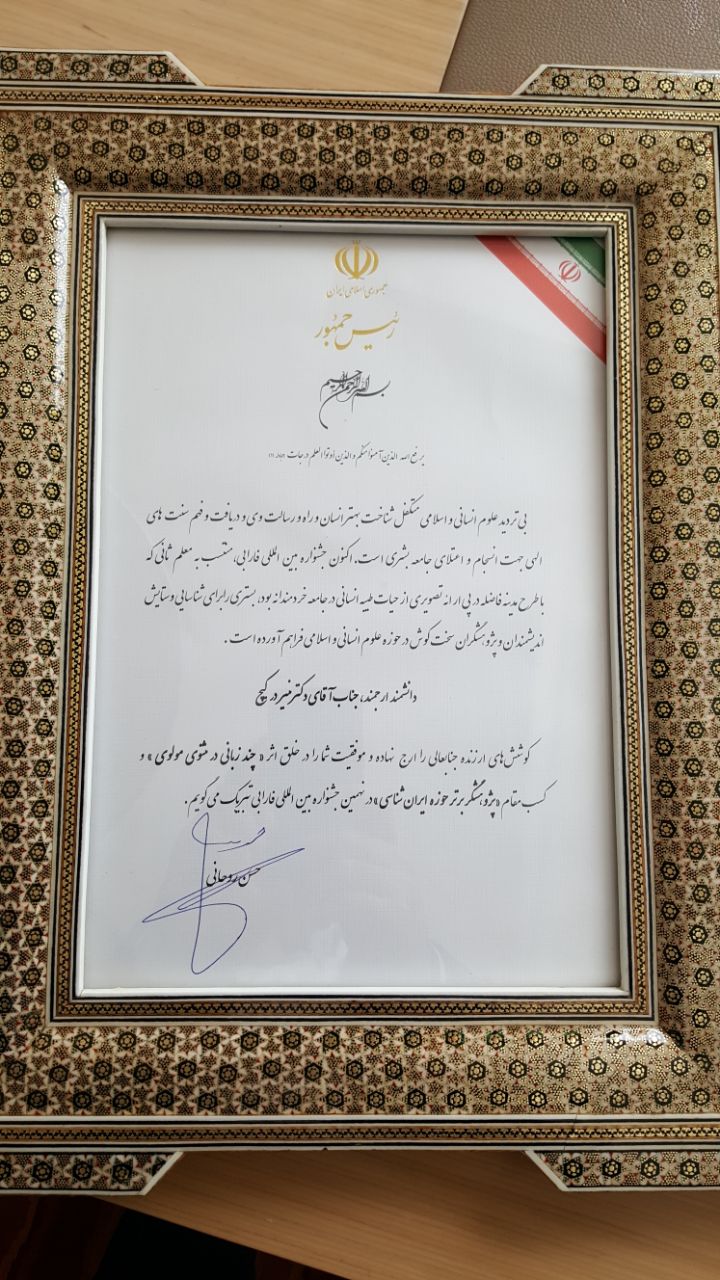 جمهوری اسلامی ایران
رئیس جمهور
بسم الله الرحمن الرحیم
یرفع الله الذین آمنوا منکم و الذین أوتوا العلم درجات
بی تردید علوم انسانی و اسلامی متکفل شناخت بهتر انسان و راه و رسالت وی و دریافت و فهم سنت های
الهی جهت انسجام و اعتلای جامعه بشری است. اکنون جشنواره بین المللی فارابی، منتسب به معلم ثانی که
با طرح مدینه فاضله در پی ارائه تصویری از حیات طیبه انسانی در جامعه خردمندانه بود، بستری را برای شناسایی و ستایش
اندیشمندان و پژوهشگران سخت کوش در حوزه علوم انسانی و اسلامی فراهم آورده است.
دانشمند ارجمند، جناب آقای دکتر منیر درکیچ
کوشش‌های ارزنده جنابعالی را ارج نهاده و موفقیت شما را در خلق اثر «چند زبانی در مثنوی مولوی» و
کسب مقام «پژوهشگر برتر حوزه ایران شناسی» در نهمین جشنواره بین المللی فارابی تبریک می گویم.
حسن روحانی